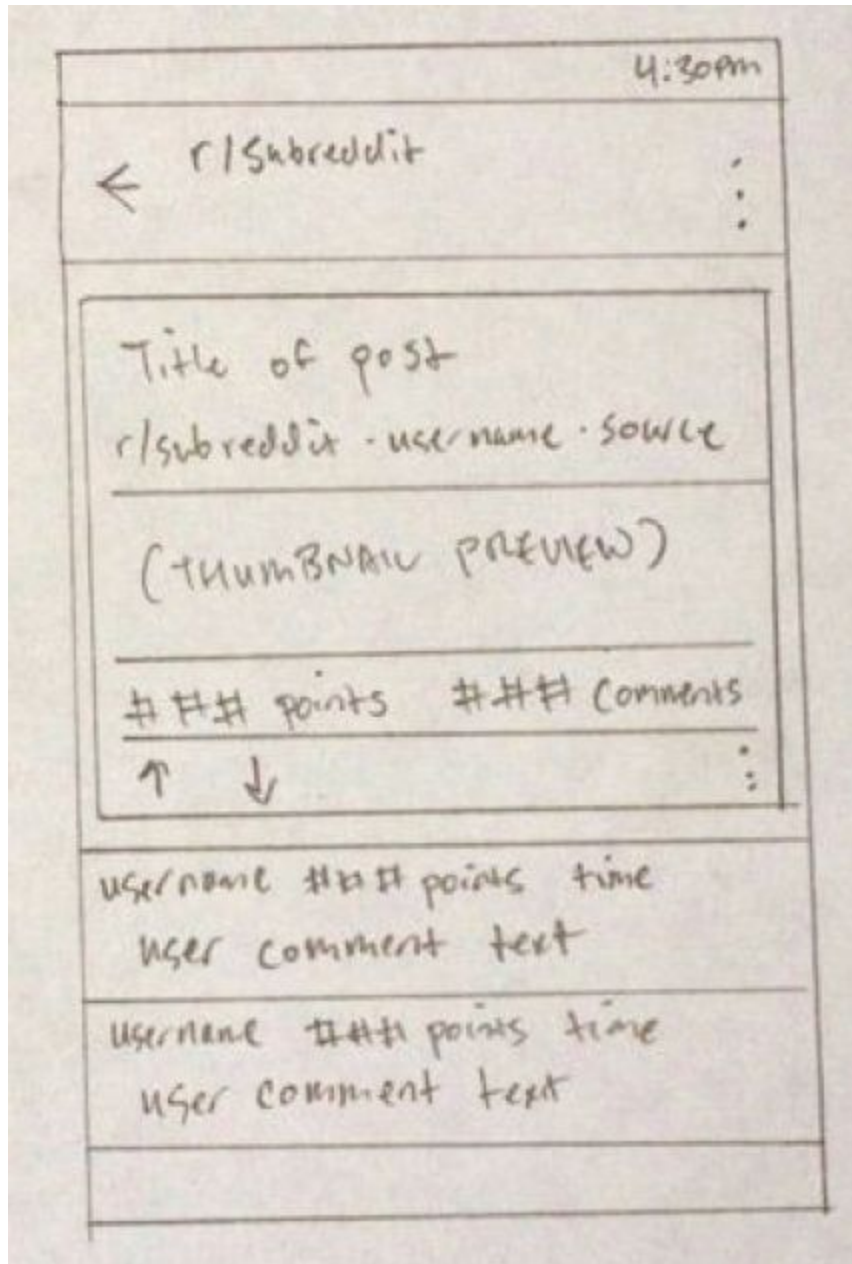 4:30pm
r/Subreddit
Title of post
r/subreddit · username · source
(THUMBNAIL PREVIEW)
### points ### Comments
username ### points time
user comment text
username ### points time
user comment text